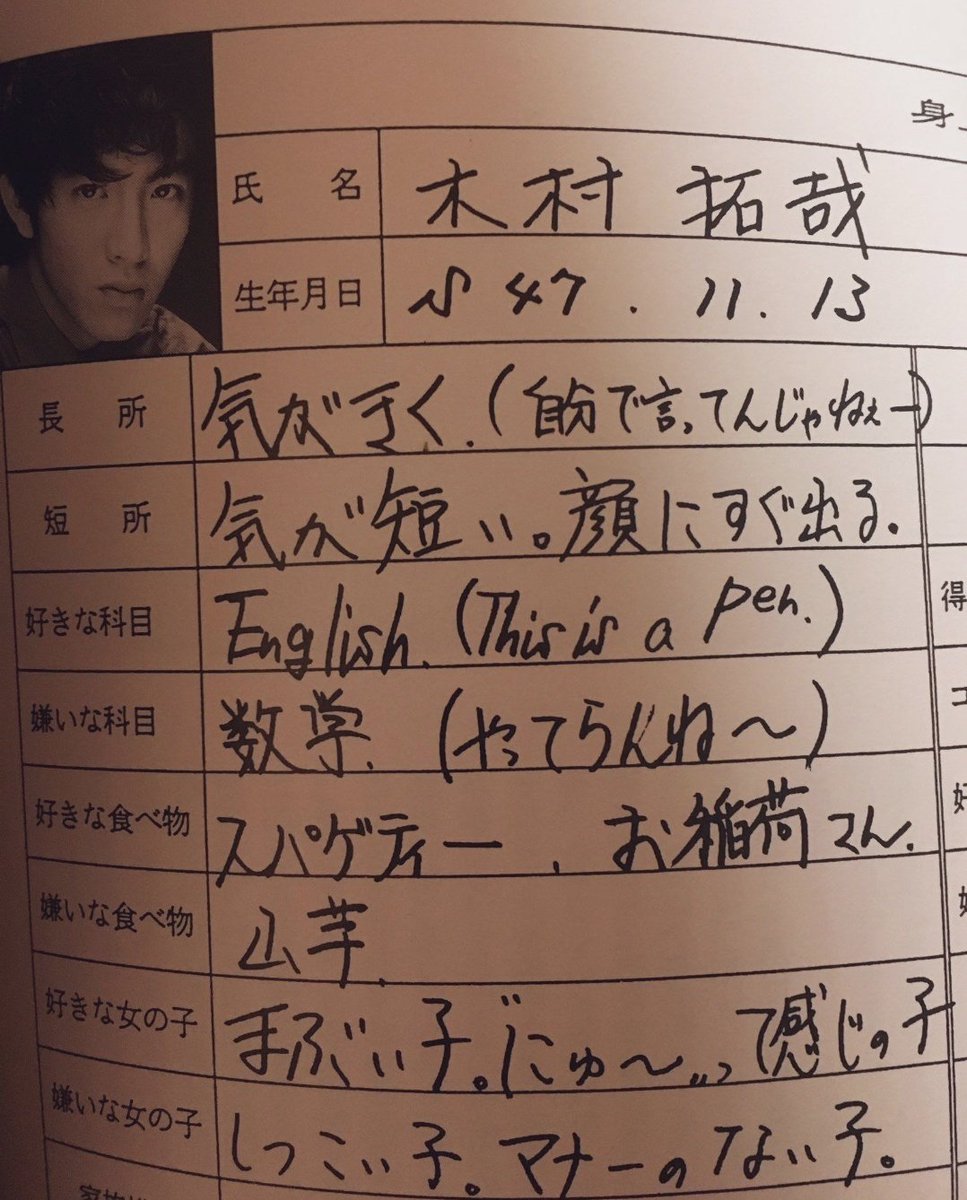 身
氏 名 木村 拓哉
生年月日 S 47 . 11 . 13
長 所 気がきく.(自分で言ってんじゃねぇー)
短 所 気が短い。顔にすぐ出る.
好きな科目 English. (This is a pen.)
得
嫌いな科目 数学. (やってらんね〜)
好きな食べ物 スパゲティー . お稲荷さん.
好
嫌いな食べ物 山芋.
嫌
好きな女の子 まぶい子。“にゅ〜„って感じの子
嫌いな女の子 しつこい子。マナーのない子。